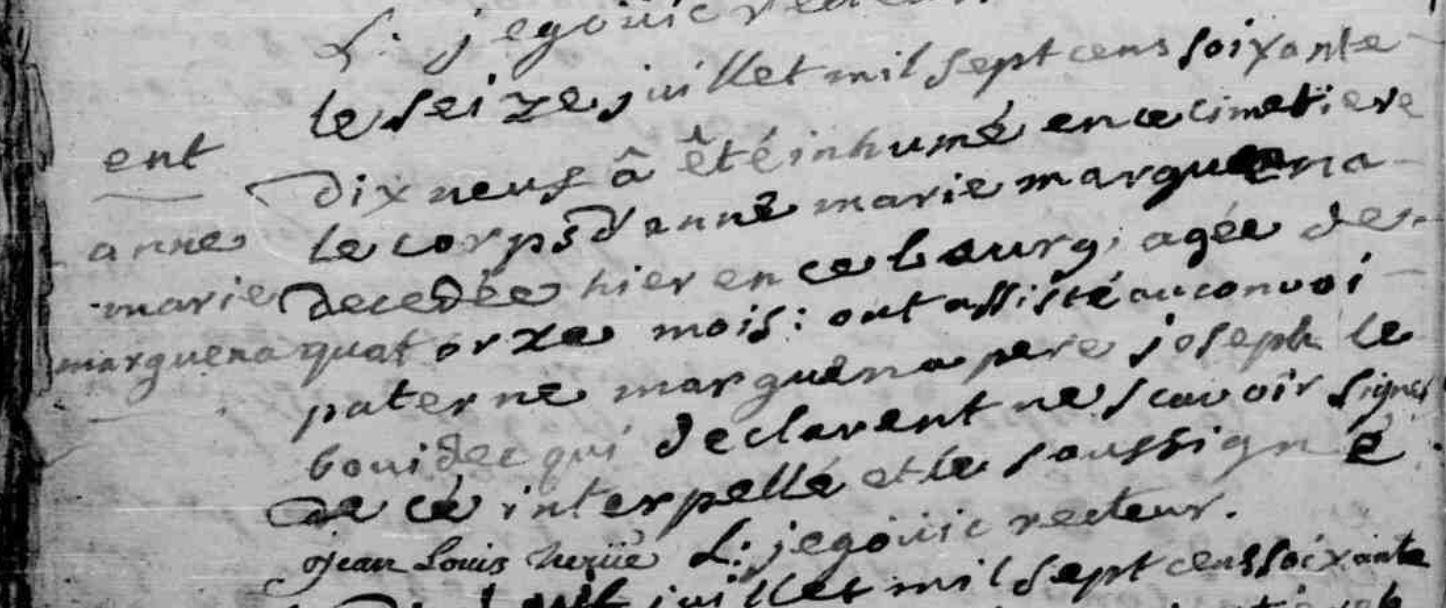 L: jegoüic recteur
le seize juillet mil sept cens soixante
ent
dix neuf â êté inhumé en ce cimetiere
anne
le corps d'anne marie marguena
marie
decedée hier en ce bourg, agée de
marguena
quatorze mois: ont assisté au convoi
paterne marguena pere joseph le
bouidec qui declarent ne scavoir signer
de ce interpellé et le soussigné
jean Louis heruè L: jegoüic recteur.
juillet mil sept cens soixante